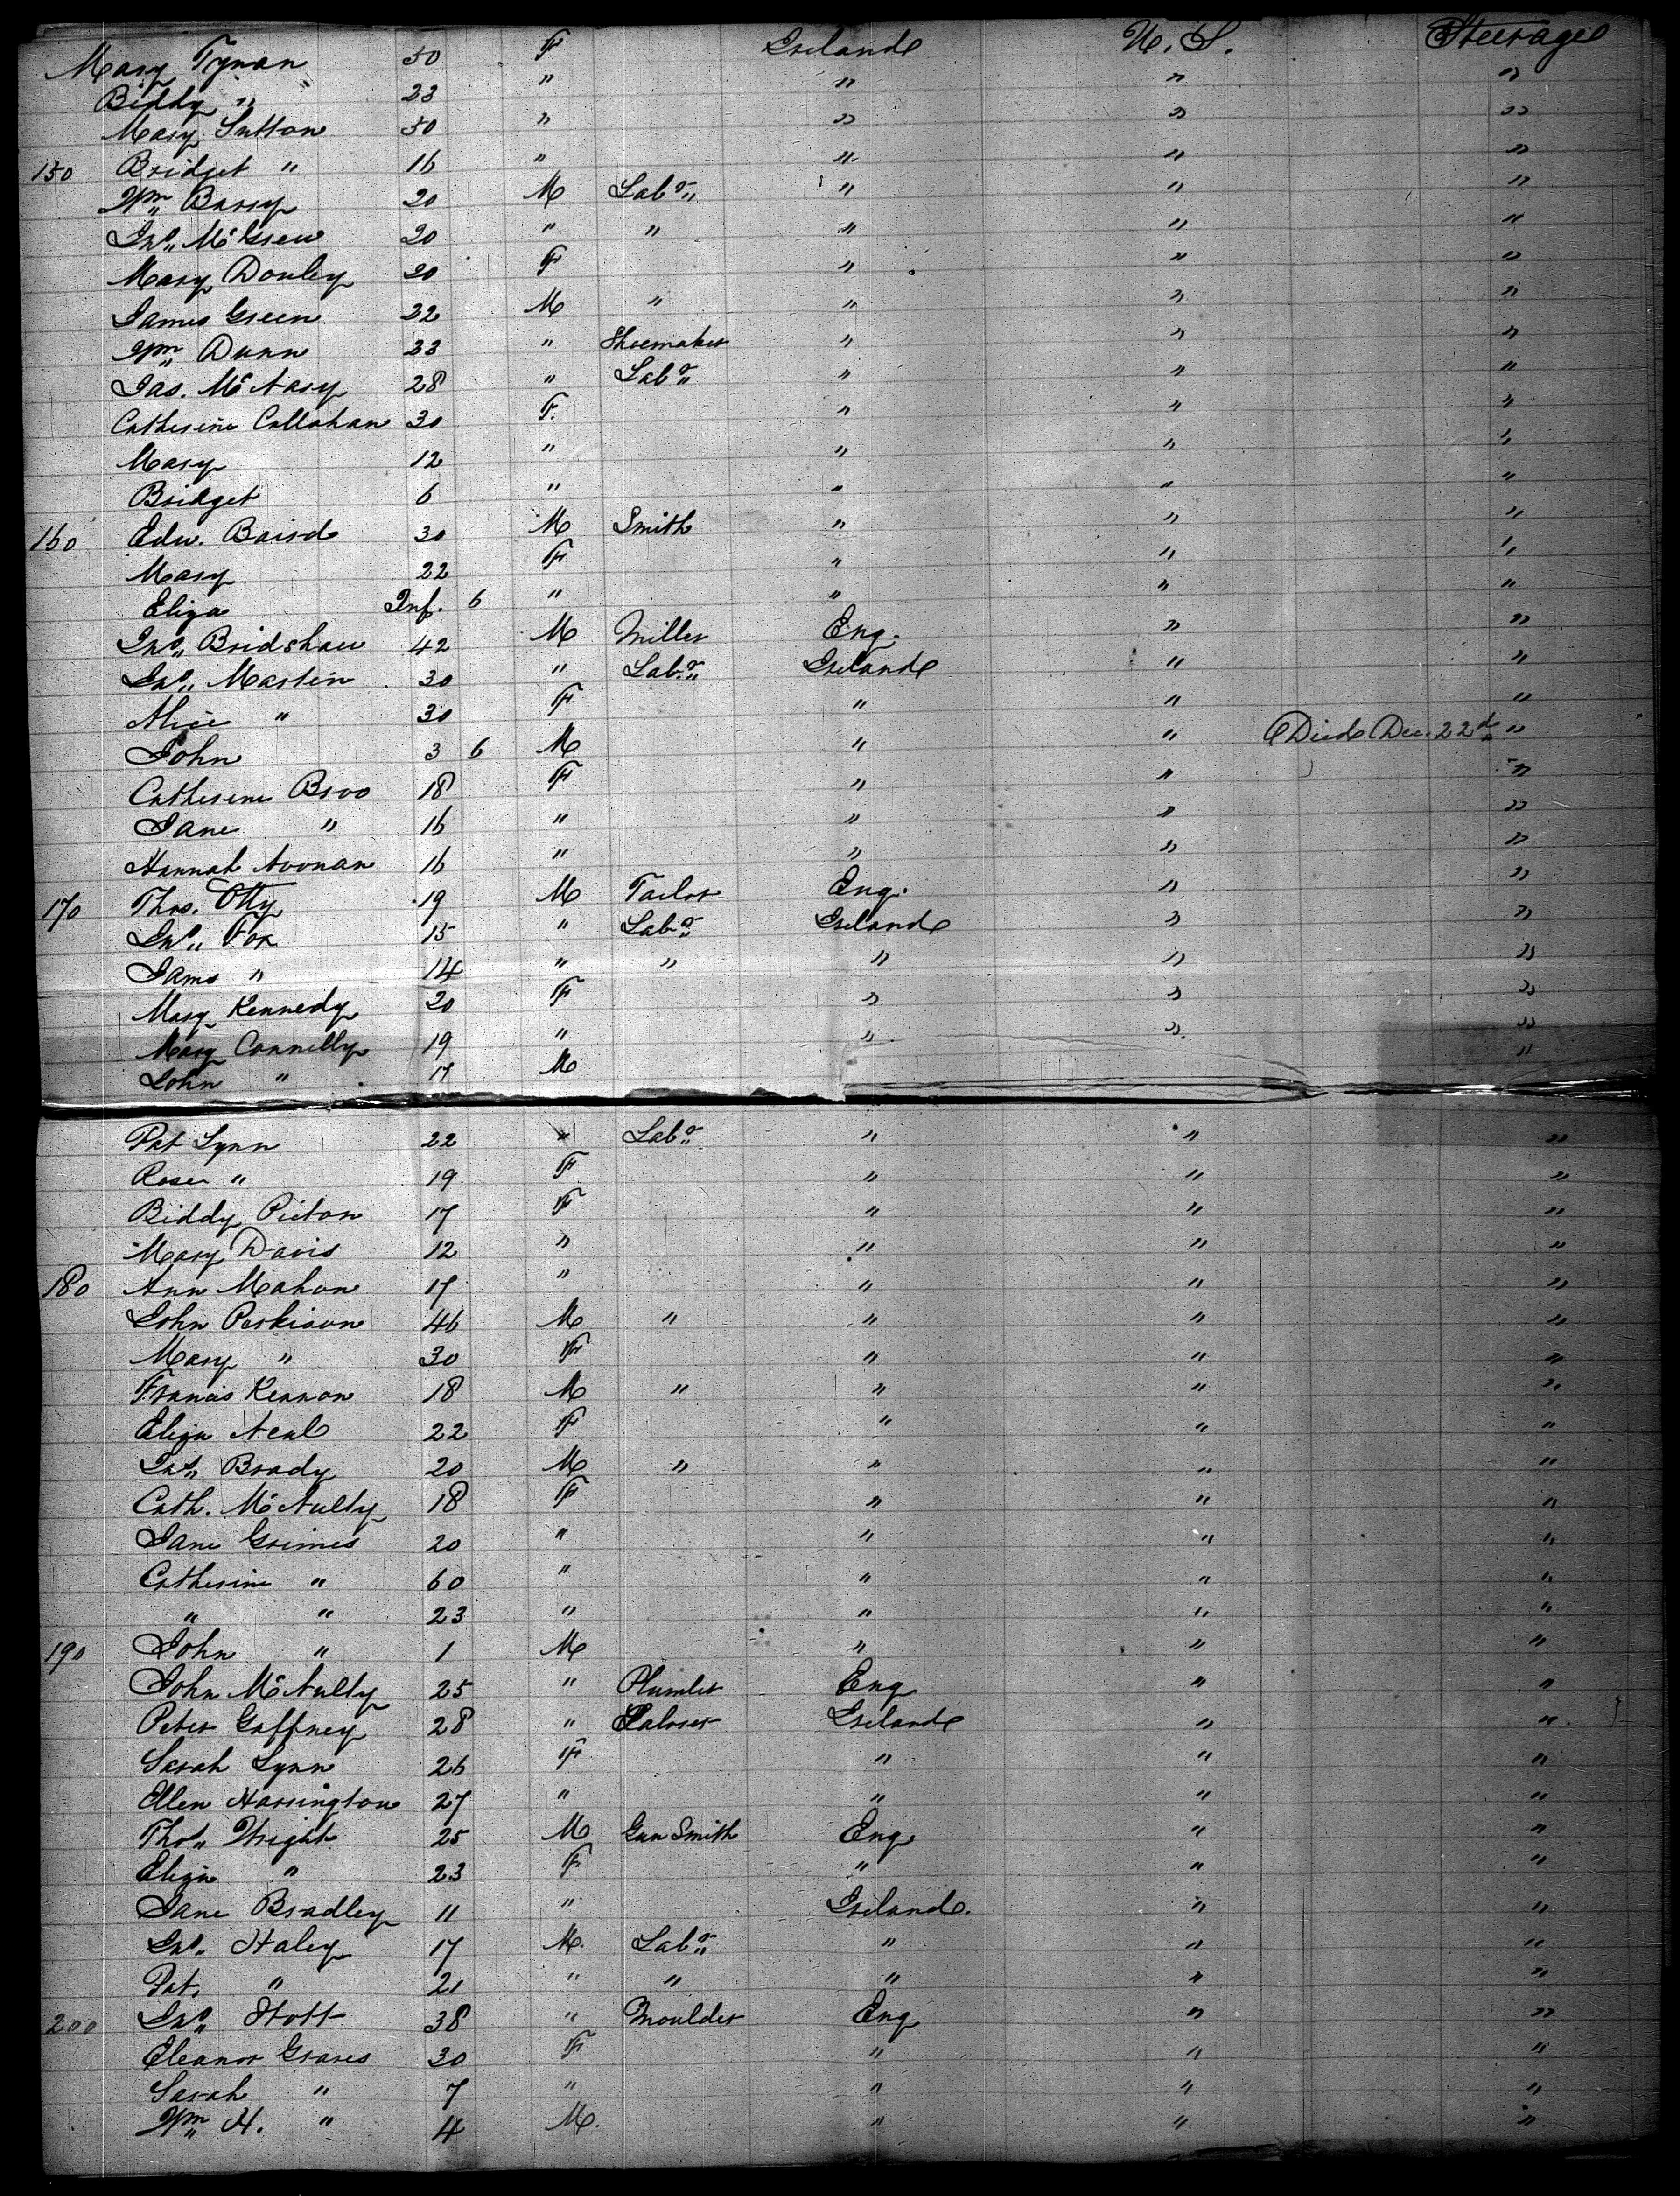 Mary Tynan 50 F Ireland U. S. Steerage
Biddy " 23 " " " "
Mary Sutton 50 " " " "
150 Bridget " 16 " " " "
Wm Barry 20 M Labr " " "
Jno McGrew 20 " " " " "
Mary Donley 20 F " " "
James Green 32 M " " " "
Wm Dunn 23 " Shoemaker " " "
Jas. McNary 28 " Labr " " "
Catherine Callahan 30 F. " " "
Mary 12 " " " "
Bridget 6 " " " "
160 Edw. Baird 30 M Smith " " "
Mary 22 F " " "
Eliza Inf. 6 " " " "
Jno Bridshaw 42 M Miller Eng. " "
Jno Martin 30 " Labr Ireland " "
Alice " 30 F " " "
John 3 6 M " " Died Dec. 22d "
Catherine Broo 18 F " " "
Jane " 16 " " " "
Hannah Noonan 16 " " " "
170 Thos. Otty 19 M Tailor Eng. " "
Jno Fox 15 " Labr Ireland " "
Jams " 14 " " " " "
Mary Kennedy 20 F " " "
Mary Connelly 19 " " " "
John " 17 M "
Pat Lynn 22 " Labr " " "
Rose " 19 F " " "
Biddy Picton 17 F " " "
Mary Davis 12 " " " "
180 Ann Mahon 17 " " " "
John Perkison 46 M " " " "
Mary " 30 F " " "
Francis Kennon 18 M " " " "
Eliza Neal 22 F " " "
Jas Brady 20 M " " " "
Cath. McNulty 18 F " " "
Jane Grimes 20 " " " "
Catherine " 60 " " " "
" " 23 " " " "
190 John " 1 M " " "
John McNulty 25 " Plumber Eng " "
Peter Gaffney 28 " Laborer Ireland " "
Sarah Lynn 26 F " " "
Ellen Harrington 27 " " " "
Thos Wright 25 M Gun Smith Eng " "
Eliza " 23 F " " "
Jane Bradley 11 " Ireland. " "
Jno. Haley 17 M. Labr " " "
Pat. " 21 " " " " "
200 Jno Stott 38 " Moulder Eng " "
Eleanor Graves 30 F " " "
Sarah " 7 " " " "
Wm H. " 4 M. " " "